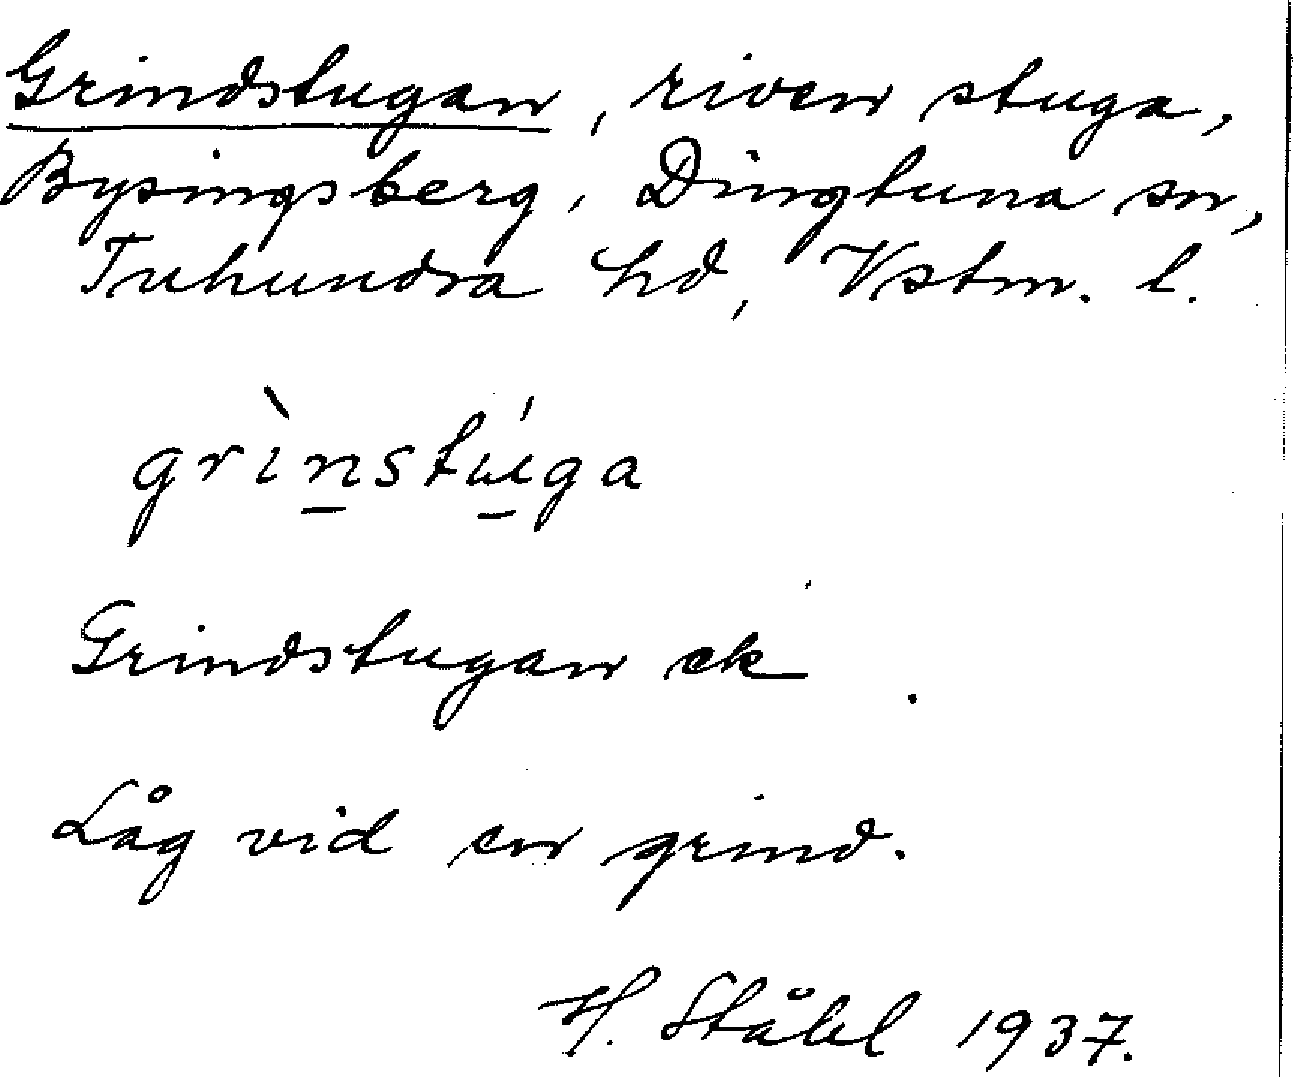 Grindstugan, riven stuga,
Bysingsberg, Dingtuna sn,
Tuhundra hd, Vstm. l.
grìn̲stú̲ga
Grindstugan ek
Låg vid en grind.
H. Ståhl 1937.